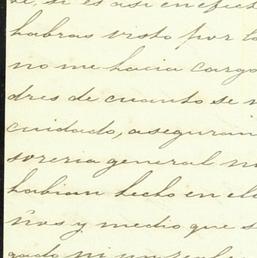 si es así en efect
habras visto por lo
no me hacia cargo
dres de cuanto se
cuidado, aseguran
soreria general
habian hecho en el
ños y medio que s
gado ni un real